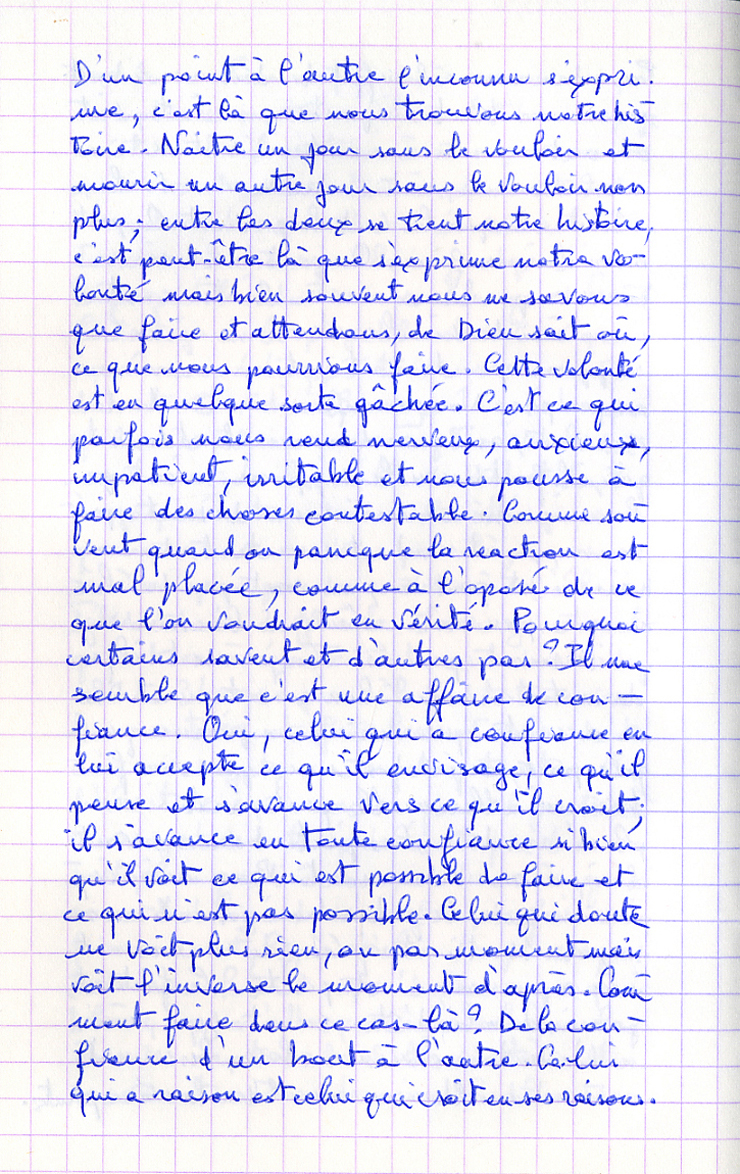 D'un point à l'autre l'inconnu s'expri-
me, c'est là que nous trouvons notre his-
toire. Naître un jour sans le vouloir et
mourir un autre jour sans le vouloir non
plus; entre les deux se tient notre histoire,
c'est peut-être là que s'exprime notre vo-
lonté mais bien souvent nous ne savons
que faire et attendons, de Dieu sait où,
ce que nous pourrions faire. Cette volonté
est en quelque sorte gâchée. C'est ce qui
parfois nous rend nerveux, anxieux,
impatient, irritable et nous pousse à
faire des choses contestable. Comme sou-
vent quand on panique la reaction est
mal placée, comme à l'oposé de ce
que l'on voudrait en vérité. Pourquoi
certains savent et d'autres pas? Il me
semble que c'est une affaire de con-
fiance. Oui, celui qui a confiance en
lui accepte ce qu'il envisage, ce qu'il
pense et s'avance vers ce qu'il croit;
il s'avance en toute confiance si bien
qu'il voit ce qui est possible de faire et
ce qui n'est pas possible. Celui qui doute
ne voit plus rien, ou pas moment mais
voit l'inverse le moment d'après. Com-
ment faire dans ce cas-là? De la con-
fiance d'un bout à l'autre. Celui
qui a raison est celui qui croit en ses raisons.